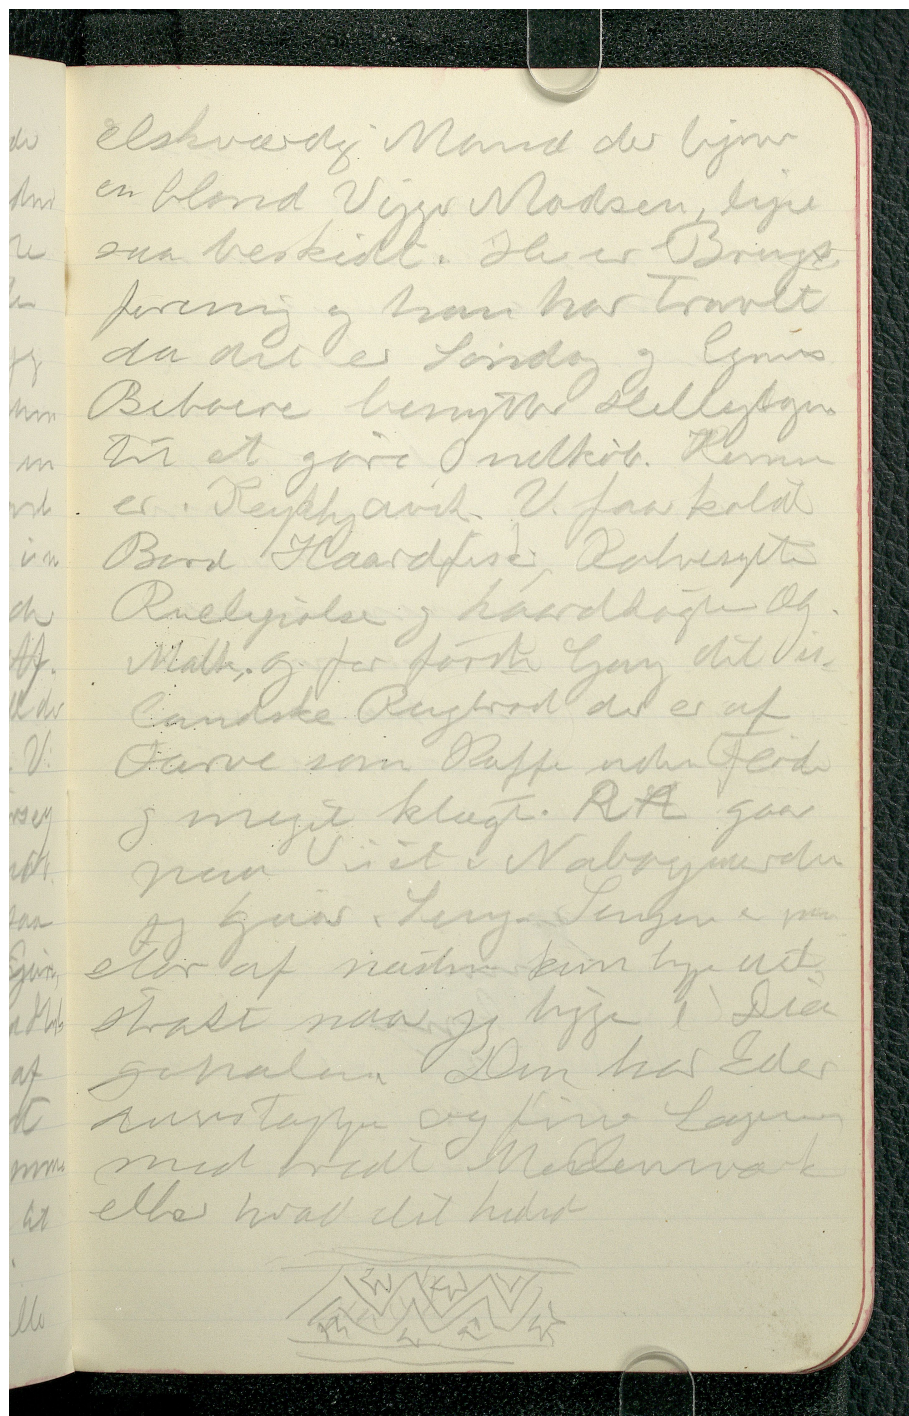 elskværdig Mand der ligner
en blond Viggo Madsen, lige
saa beskidt. Her er Brugs
forening og han har Travlt
da det er Søndag og Egnens
Beboere benytter Helligdagen
til at gøre Indkøb.
er i Reykjavik. Vi faar koldt
Bord Haardfisk, Kalvesylte
Rullepølse og haardkogte Æg.
Mælk, og for første Gang det is-
landske Rugbrød der er af
Farve som Kaffe uden Fløde
og meget klæget. RA gaar
paa Visit i Nabogaarden
og jeg i Seng. Sengen er paa
stor af næsten kun ligge ud
strakt naar jeg ligger i Dia
gonalen. Den har Eder
dunstæppe og fine Lagener
med bredt Mellemværk
eller hvad det hedder